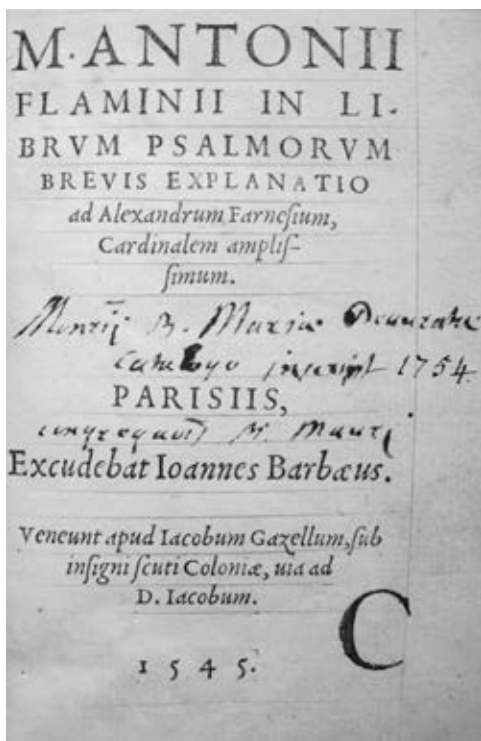 M. ANTONII
FLAMINII IN LI-
BRVM PSALMORVM
BREVIS EXPLANATIO
ad Alexandrum Farneſium,
Cardinalem ampliſ-
ſimum.
B. Mariæ
catalogo inscript 1754.
PARISIIS,
S. Mauri
Excudebat Ioannes Barbæus.
Veneunt apud Iacobum Gazellum, ſub
inſigni ſcuti Coloniæ, uia ad
D. Iacobum.
C
1545.